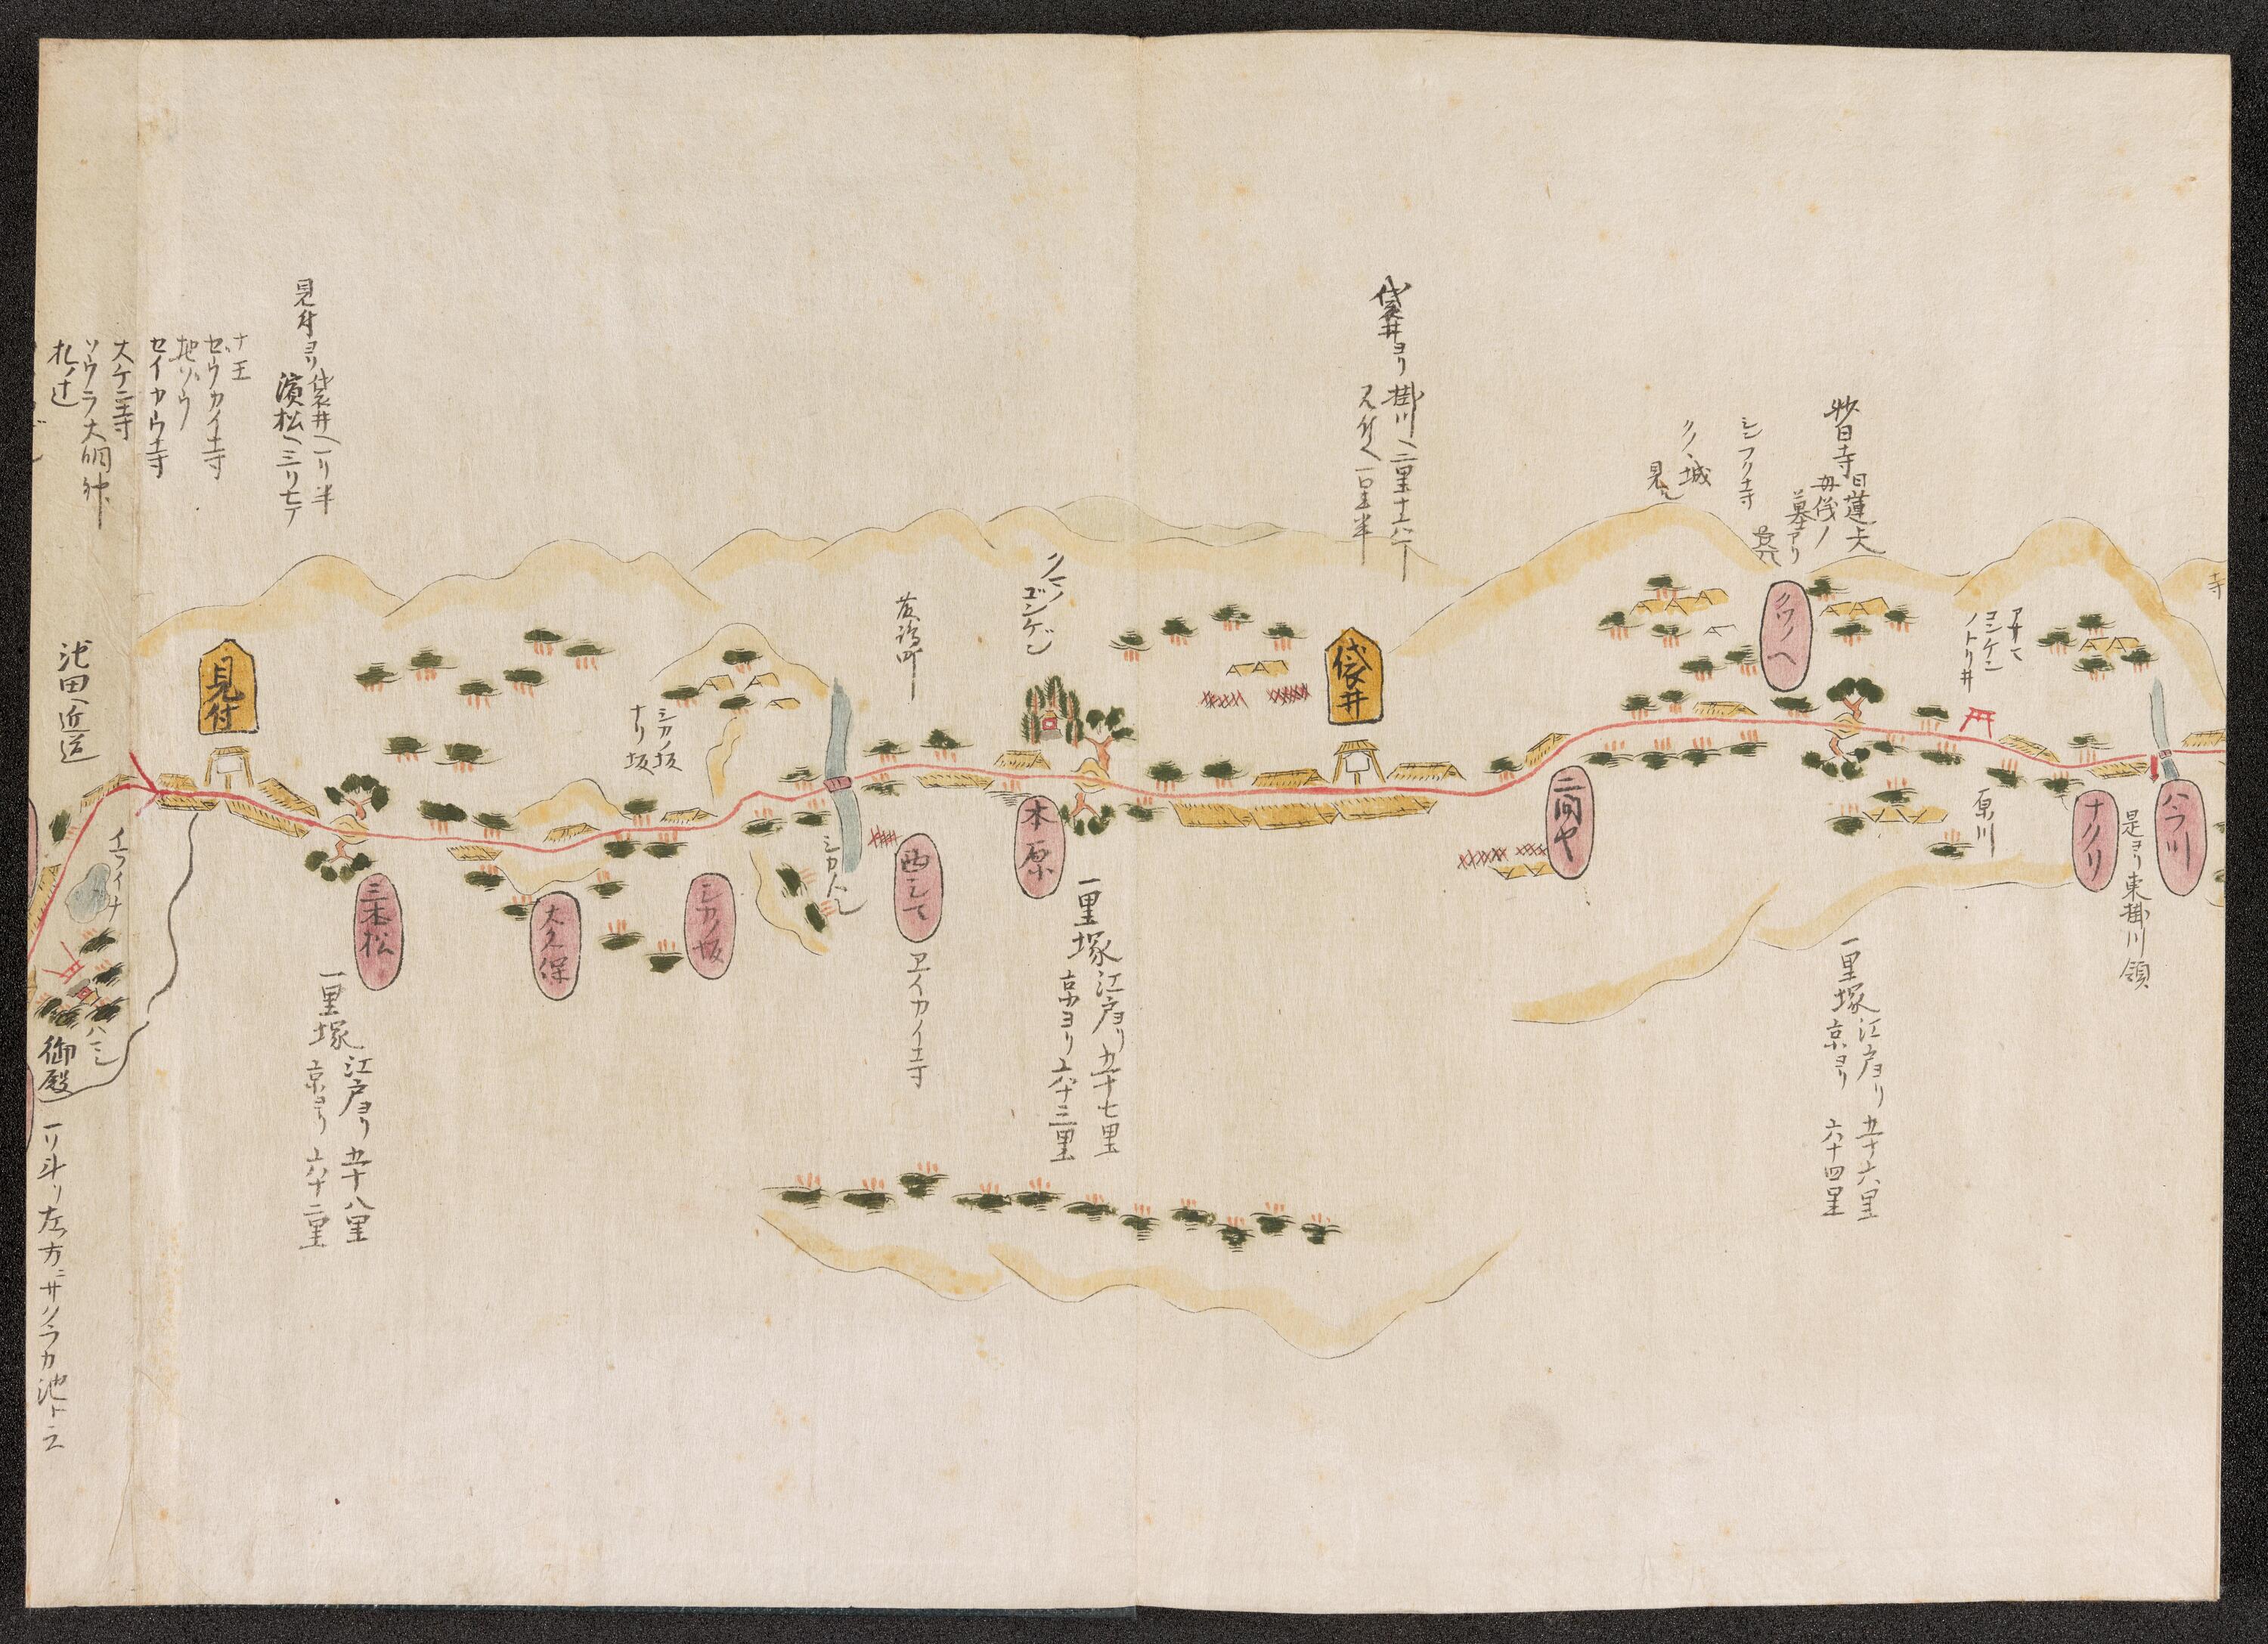 寺
ハラ川
是ヨリ東掛川領
ナクリ
原川
コンケン
ノトリ井
妙日寺
日蓮
母ノ
墓アリ
一里塚
江戸ヨリ 五十六里
京ヨリ 六十四里
クツノヘ
シンフク寺
クノヽ城
見ユ
二間や
袋井ヨリ
掛川ヘ二里十六丁
見付ヘ一里半
袋井
一里塚
江戸ヨリ五十七里
京ヨリ六十三里
木原
西シマ
シカノ坂
ナリ坂
シカノ坂
大久保
三本松
一里塚
江戸ヨリ 五十八里
京ヨリ 六十二里
見付ヨリ
袋井ヘ一リ半
濱松ヘ三リ七丁
見付
十王
地ゾウ
セイカウ寺
大ケン寺
ソウラ大明神
札ノ辻
池田ヘ近道
ハマミ
御殿
一リ斗リ左ノ方ニサクラカ池ト云